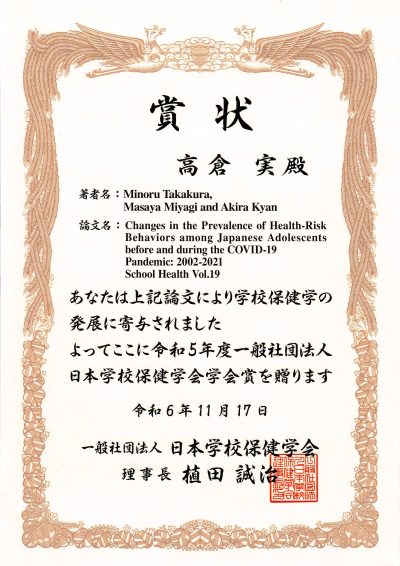 賞状
高倉 実 殿
著者名：Minoru Takakura,
Masaya Miyagi and Akira Kyan
論文名：Changes in the Prevalence of Health-Risk
Behaviors among Japanese Adolescents
before and during the COVID-19
Pandemic: 2002-2021
School Health Vol.19
あなたは上記論文により学校保健学の
発展に寄与されました
よってここに令和5年度一般社団法人
日本学校保健学会学会賞を贈ります
令和6年11月17日
一般社団法人 日本学校保健学会
理事長 植田 誠治